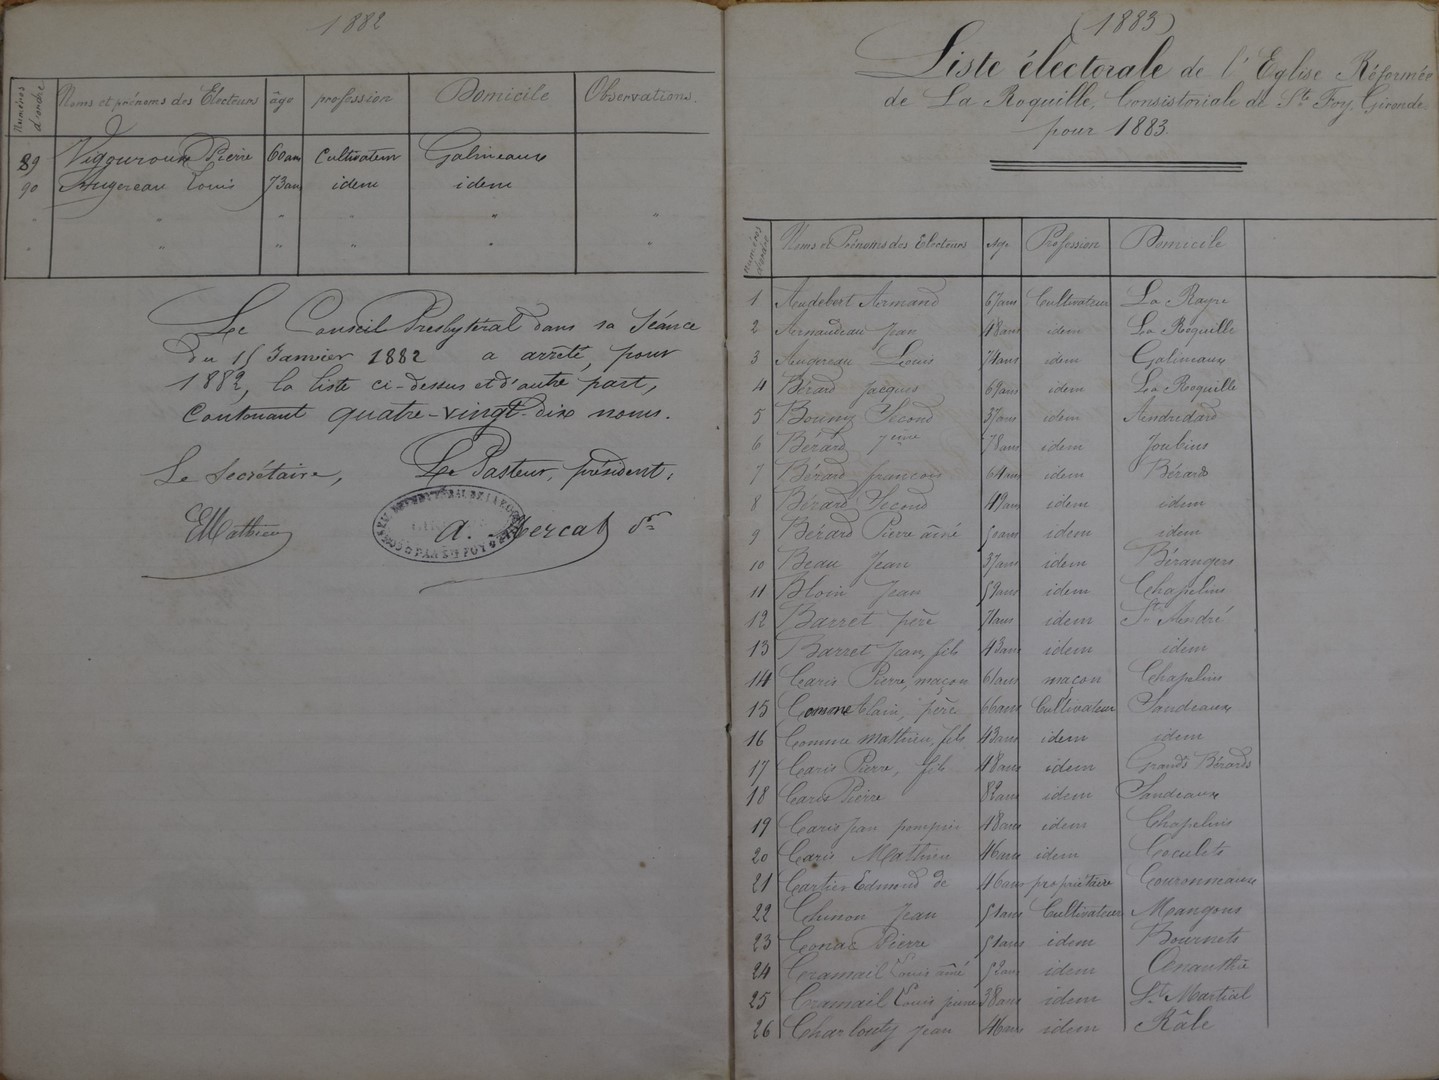 1882
Numéros d'ordre Noms et prénoms des Electeurs âge profession Domicile Observations.
89 Vigouroux Pierre 60 ans Cultivateur Galineaux
90 Augereau Louis 73 ans idem idem
" " " " " "
" " " " "
Le Conseil Presbytéral dans sa Séance
du 15 Janvier 1882 a arrêté, pour
1882, la liste ci-dessus et d'autre part,
Contenant quatre-vingt-dix noms.
Le Secrétaire, Le Pasteur, président,
EMathieu A. Mercat
(1883)
Liste électorale de l'Eglise Réformée
de La Roquille, Consistoriale de Ste Foy, Gironde
pour 1883.
Numéros d'ordre Noms et Prénoms des Electeurs Age Profession Domicile
1 Audebert Armand 67 ans Cultivateur La Rayre
2 Arnaudeau Jean 48 ans idem La Roquille
3 Augereau Louis 74 ans idem Galineaux
4 Bérard Jacques 69 ans idem La Roquille
5 Second 37 ans idem Andredard
6 Bérard 7eme 78 ans idem Joubins
7 Bérard françois 64 ans idem Bérards
8 Bérard Second 49 ans idem idem
9 Bérard Pierre aîné idem idem
10 Beau Jean 37 ans idem Bérangers
11 Bloin Jean 59 ans idem Chapelins
12 Barret père 71 ans idem St André
13 Barret Jean, fils 43 ans idem idem
14 Caris Pierre, maçon 61 ans maçon Chapelins
15 Comme Clain, père 66 ans Cultivateur Sandeaux
16 Comme mathieu, fils 43 ans idem idem
17 Caris Pierre, fils 48 ans idem Grands Bérards
18 Caris Pierre 82 ans idem Sandeaux
19 Caris Jean pompier 48 ans idem Chapelins
20 Caris Mathieu 46 ans idem Coculets
21 Cartier Edmond de 46 ans propriétaire Couronneaux
22 Chinon Jean 51 ans Cultivateur Mangons
23 Conac Pierre 51 ans idem Bournets
24 Cramail Louis aîné 52 ans idem
25 Cramail Louis jeune 38 ans idem St Martial
26 Charlouty Jean 46 ans idem Râle